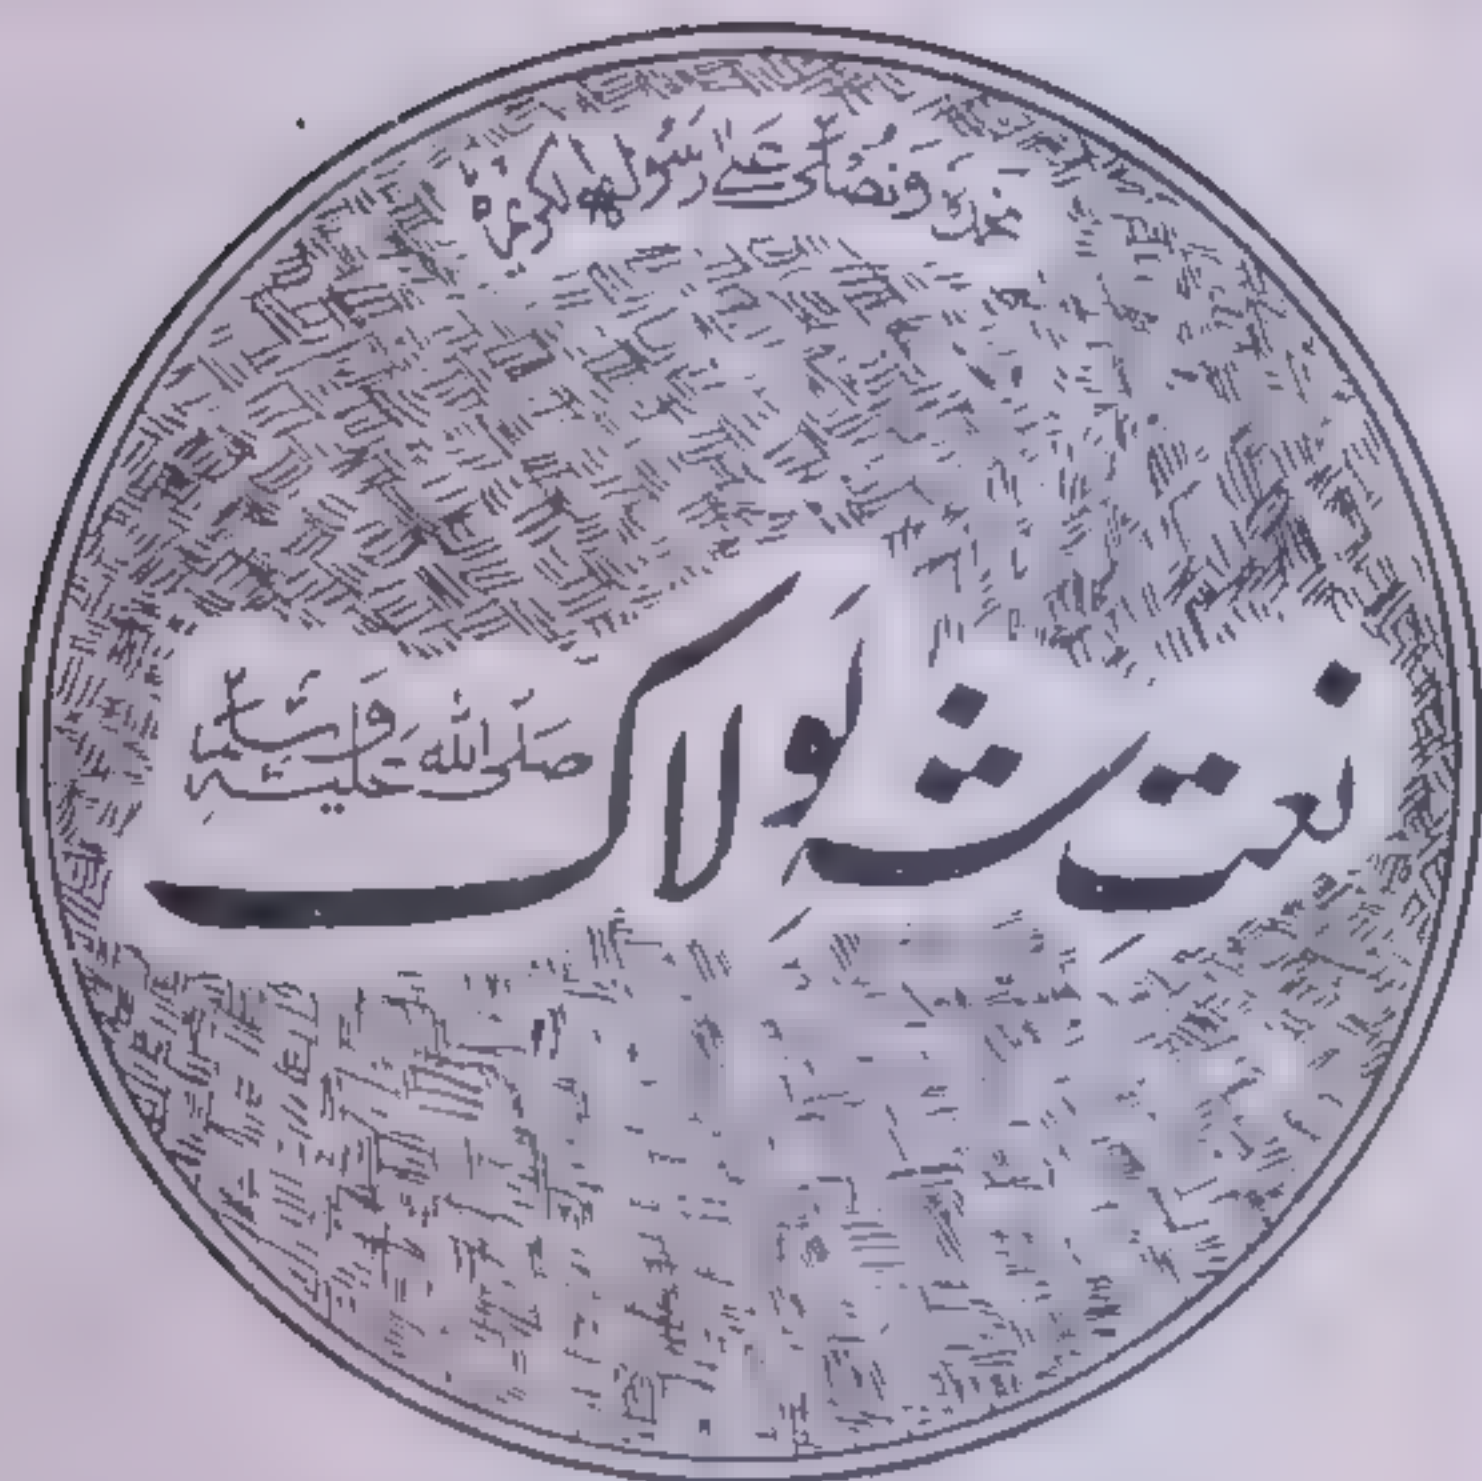 نحمدہ وَنُصَلِّی عَلٰے رَسُولِہِ الکریم
نعتِ شہِ لَولاک صَلَّی اللہ عَلَیہِ وَسَلَّم